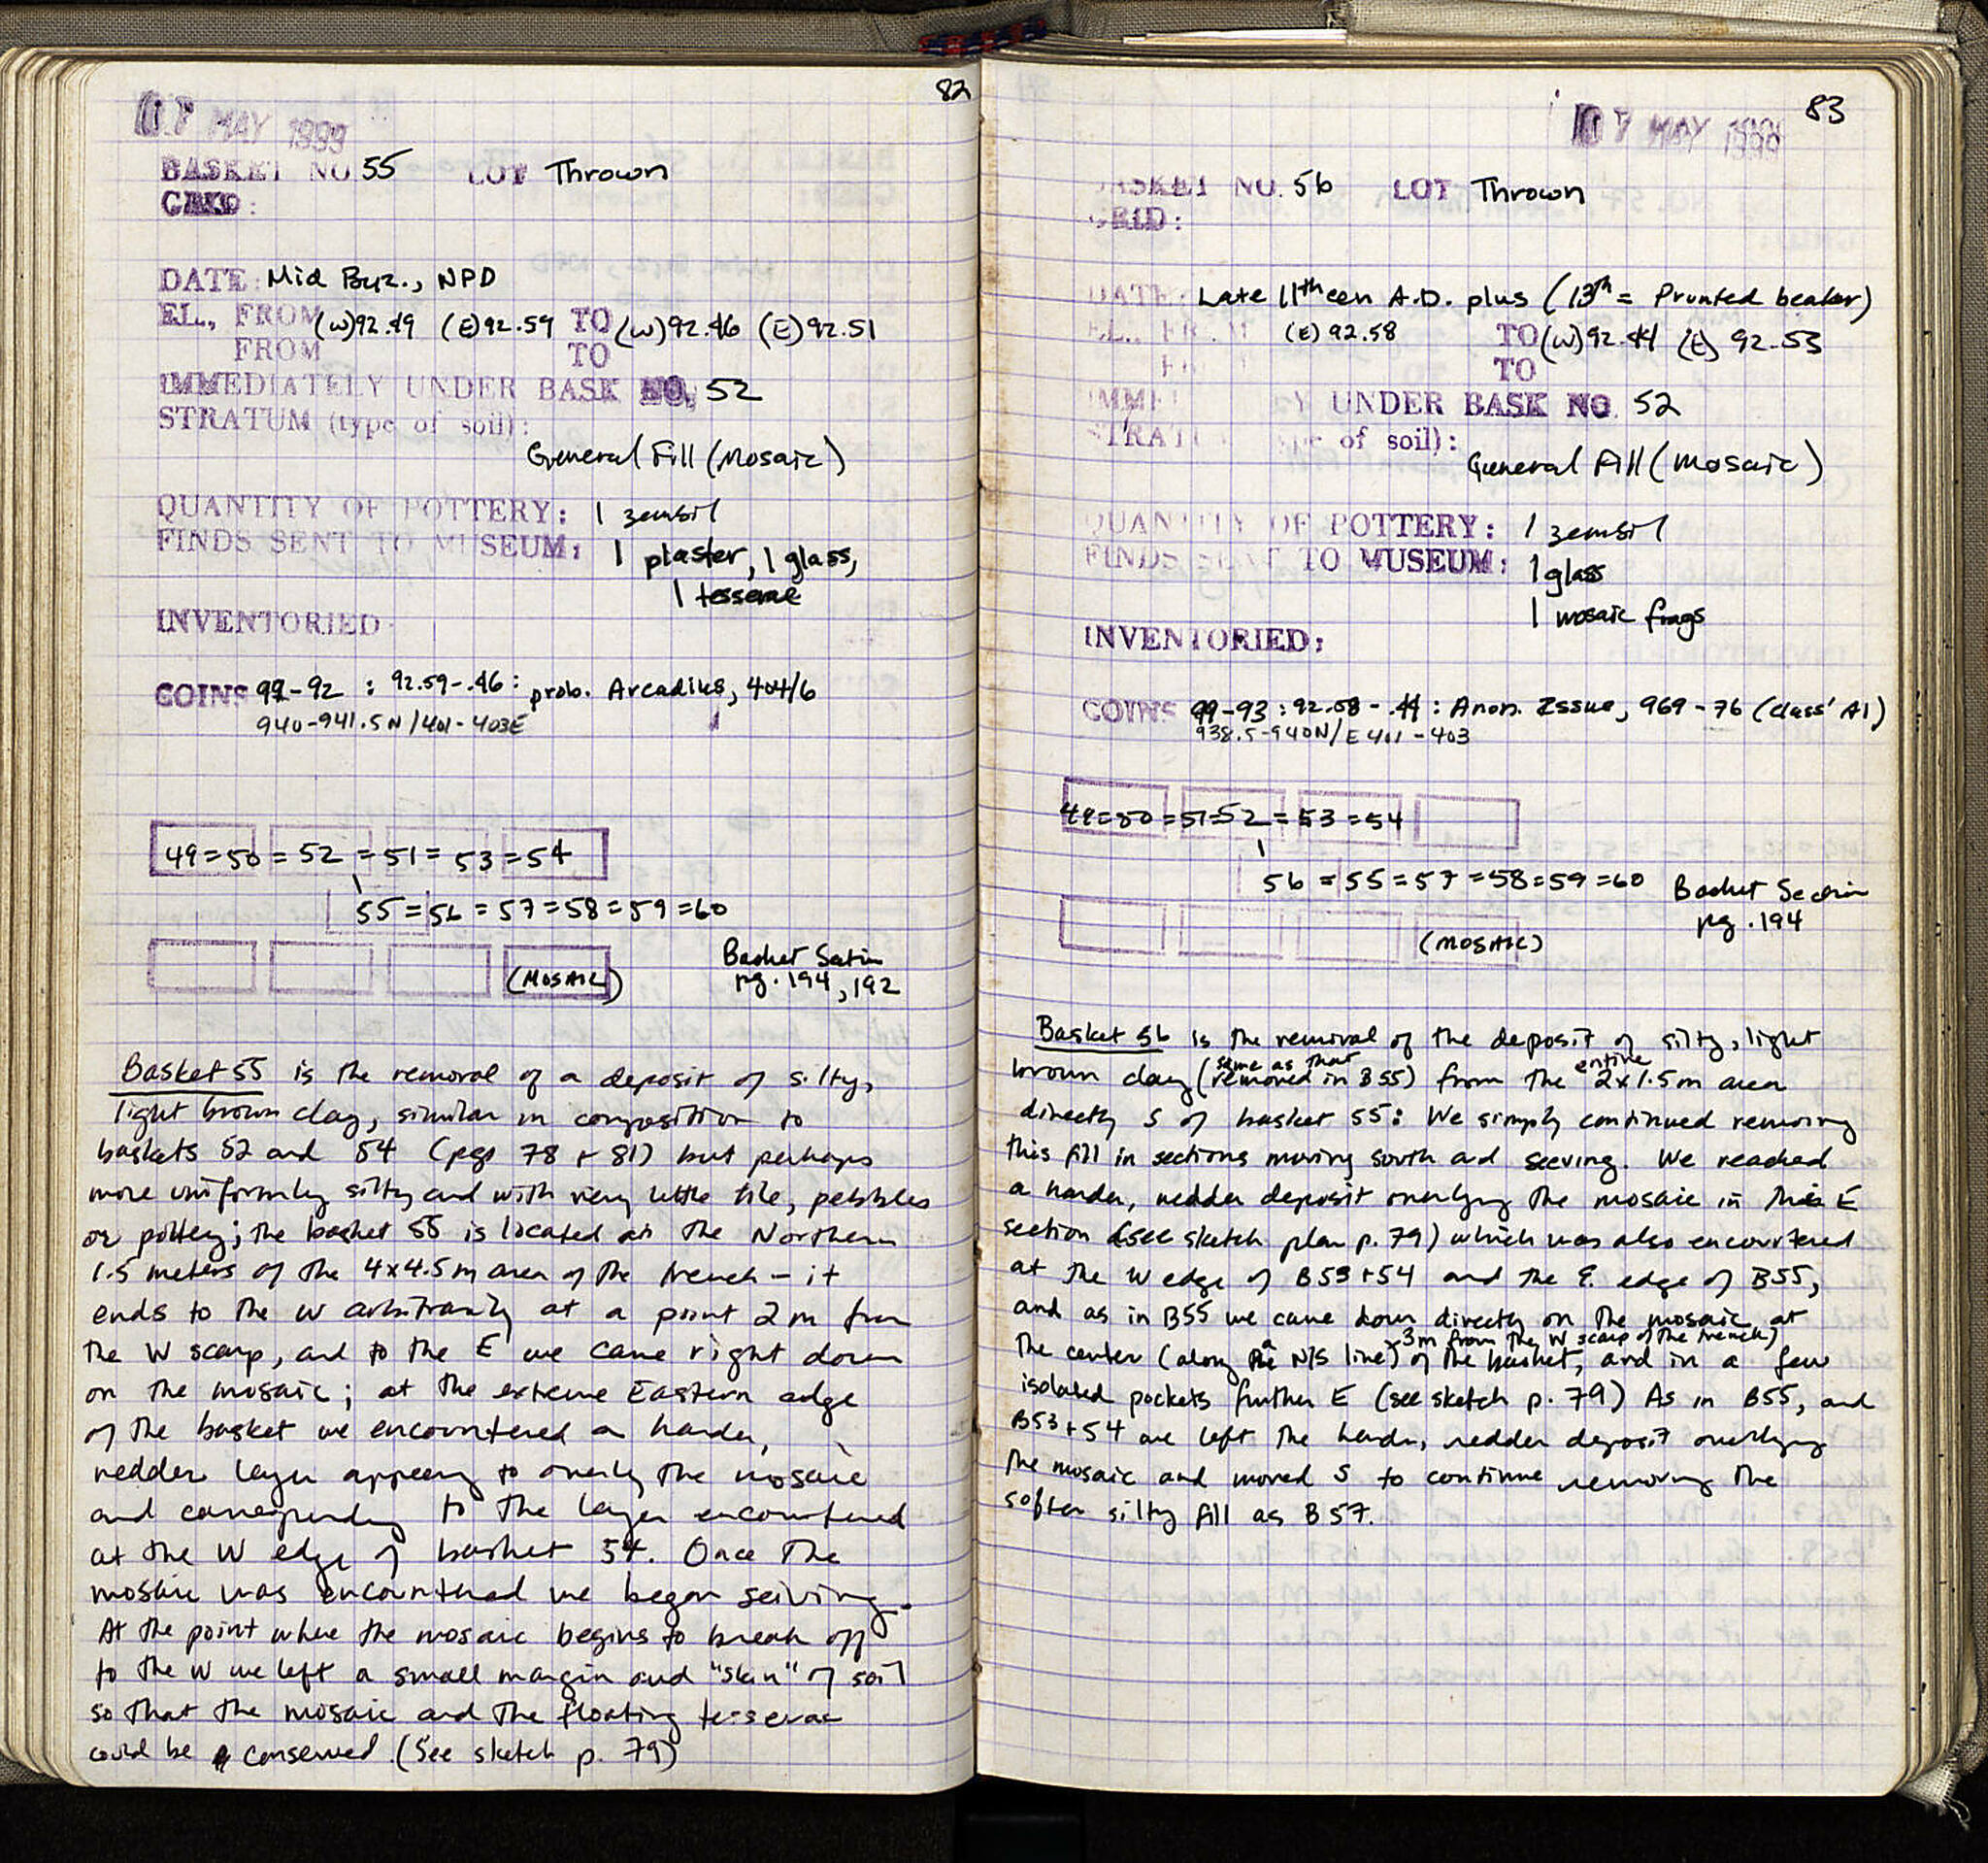 82
07 MAY 1999
BASKET NO 55 LOT Thrown
GRID:
DATE: Mid Byz., NPD
EL., FROM (W)92.49 (E)92.59 TO (W)92.46 (E)92.51
FROM TO
IMMEDIATELY UNDER BASK NO. 52
STRATUM (type of soil):
General Fill (Mosaic)
QUANTITY OF POTTERY: 1 zembil
FINDS SENT TO MUSEUM: 1 plaster, 1 glass,
1 tesserae
INVENTORIED
COINS 99-92 : 92.59-.46: prob. Arcadius, 404/6
940-941.5N/401-403E
49=50=52=51=53=54
55=56=57=58=59=60
(MOSAIC)
Basket Section
pg. 194, 192
Basket 55 is the removal of a deposit of silty,
light brown clay, similar in composition to
baskets 52 and 54 (pgs 78 + 81) but perhaps
more uniformly silty and with very little tile, pebbles
or pottery; the basket 55 is located at the Northern
1.5 meters of the 4x4.5m area of the trench - it
ends to the W arbitrarily at a point 2m from
the W scarp, and to the E we came right down
on the mosaic; at the extreme Eastern edge
of the basket we encountered a harder,
redder layer appearing to overly the mosaic
and corresponding to the layer encountered
at the W edge of basket 54. Once the
mosaic was encountered we began seiving.
At the point where the mosaic begins to break off
to the W we left a small margin and "skin" of soil
so that the mosaic and the floating tesserae
could be conserved. (See sketch p. 79)
83
07 MAY 1999
BASKET NO. 56 LOT Thrown
GRID:
DATE: Late 11th cen A.D. plus (13th = Prunted beaker)
EL., FROM (E) 92.58 TO (W)92.44 (E) 92.53
FROM TO
IMMEDIATELY UNDER BASK NO. 52
STRATUM (type of soil):
General Fill (Mosaic)
QUANTITY OF POTTERY: 1 zembil
FINDS SENT TO MUSEUM: 1 glass
1 mosaic frags
INVENTORIED:
COINS 99-93 : 92.58-.44 : Anon. Issue, 969-76 (Class A1)
938.5-940N/E401-403
49=50=51=52=53=54
56=55=57=58=59=60
Basket Section
pg. 194
(MOSAIC)
Basket 56 is the removal of the deposit of silty, light
brown clay (same as that removed in B55) from the entire 2x1.5m area
directly S of basket 55: We simply continued removing
this fill in sections moving south and seeving. We reached
a harder, redder deposit overlying the mosaic in this E
section (see sketch plan p. 79) which was also encountered
at the W edge of B53+54 and the E. edge of B55,
and as in B55 we came down directly on the mosaic at
the center (along a N/S line ~3m from the W scarp of the trench) of the basket, and in a few
isolated pockets further E (see sketch p. 79) As in B55, and
B53+54 we left the harder, redder deposit overlying
the mosaic and moved S to continue removing the
softer silty fill as B57.